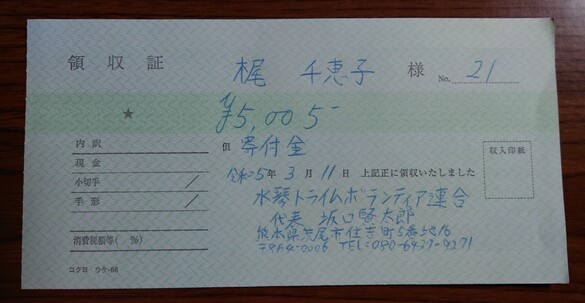 領収証
梶 千恵子 様 No. 21
★ ¥5,005-
但 寄付金
内訳
現金
小切手 /
手形 /
消費税額等( %)
収入印紙
令和5年 3月 11日 上記正に領収いたしました
水琴トライムボランティア連合
代表 坂口啓太郎
熊本県荒尾市住吉町5番地16
〒864-0006 TEL=080-6437-9271
コクヨ ウケ-66